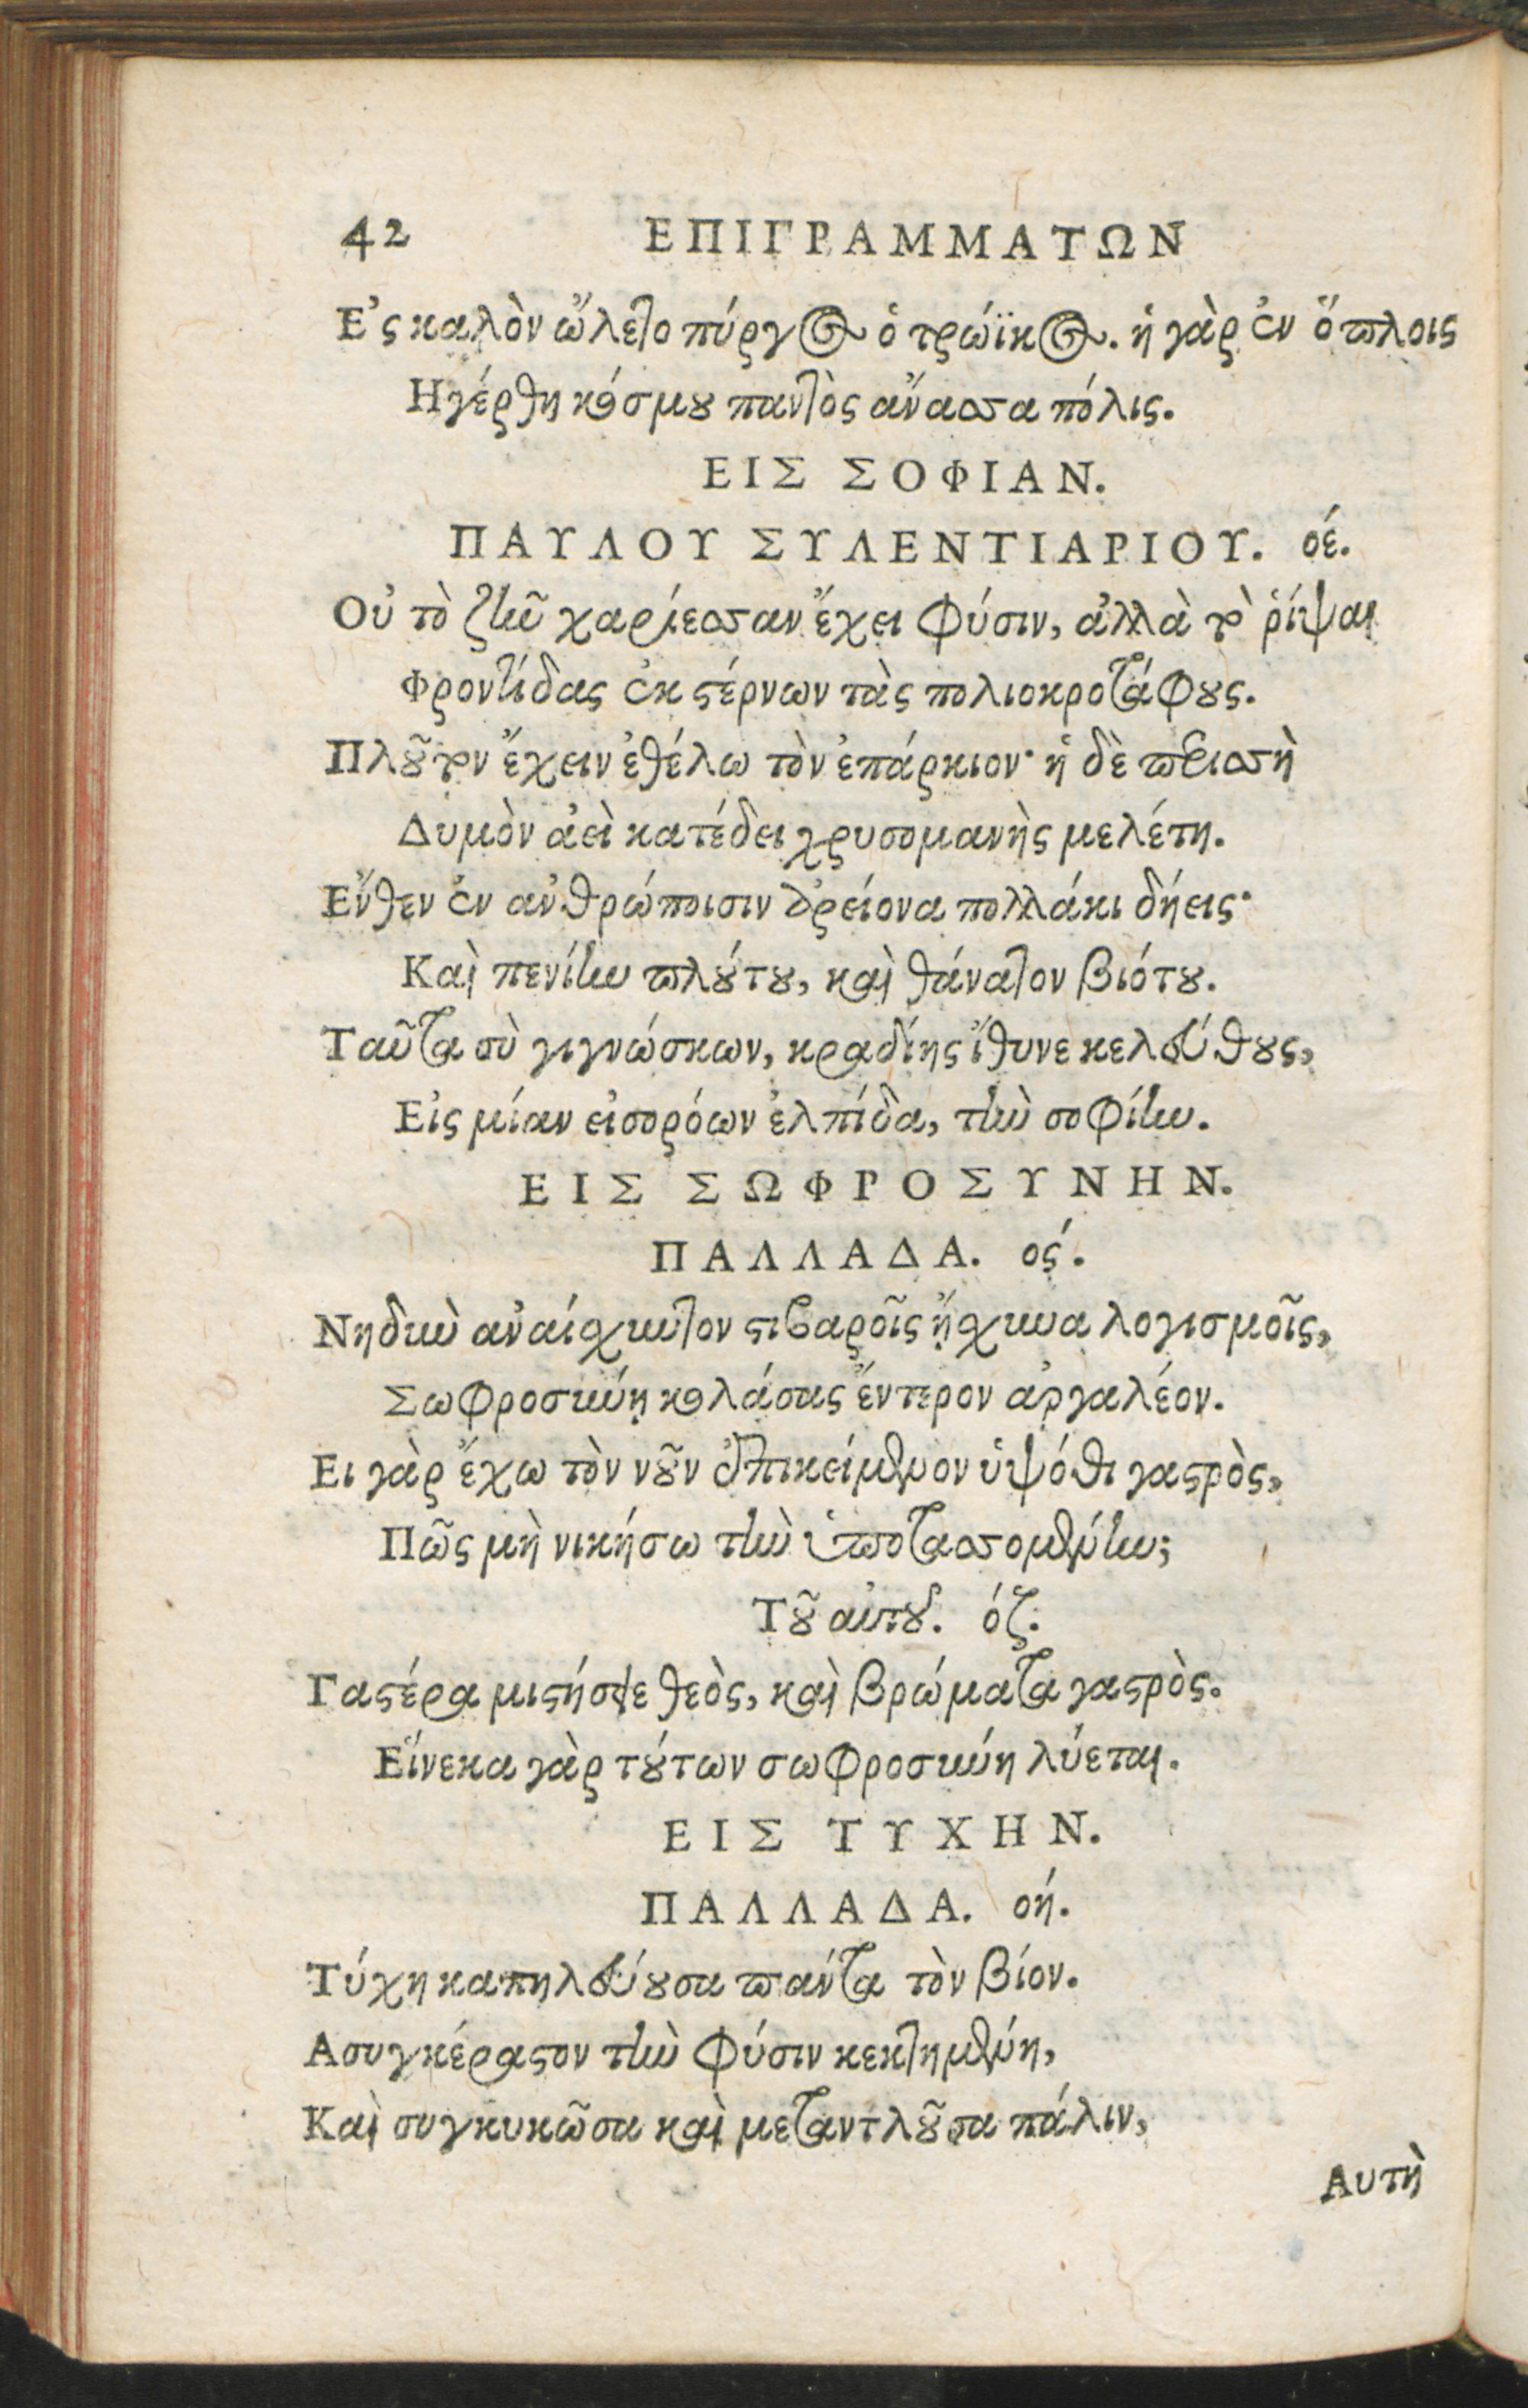 42 ΕΠΙΓΡΑΜΜΑΤΩΝ
Ε᾿ς καλὸν ὤλετο πύργος ὁ τρώϊκος. ἡ γὰρ ἐν ὅπλοις
Ηγέρθη κόσμου παντὸς ἄνασσα πόλις.
ΕΙΣ ΣΟΦΙΑΝ.
ΠΑΥΛΟΥ ΣΥΛΕΝΤΙΑΡΙΟΥ. οέ.
Οὐ τὸ ζῆν χαρίεσσαν ἔχει φύσιν, ἀλλὰ τὸ ῥίψαι
Φροντίδας ἐκ στέρνων τὰς πολιοκροτάφους.
Πλοῦτον ἔχειν ἐθέλω τὸν ἐπάρκιον· ἡ δὲ περισσὴ
Δυμὸν ἀεὶ κατέδει χρυσομανὴς μελέτη.
Εν῎θεν ἐν ἀνθρώποισιν ἀρείονα πολλάκι δήεις·
Καὶ πενίην πλούτου, καὶ θάνατον βιότου.
Ταῦτα σὺ γιγνώσκων, κραδίης ἴθυνε κελεύθους,
Εἰς μίαν εἰσορόων ἐλπίδα, τὴν σοφίην.
ΕΙΣ ΣΩΦΡΟΣΥΝΗΝ.
ΠΑΛΛΑΔΑ. ος́.
Νηδὺν ἀναίσχυντον στιβαροῖς ᾔσχυνα λογισμοῖς,
Σωφροσύνῃ κολάσας ἔντερον ἀργαλέον.
Ει γὰρ ἔχω τὸν νοῦν ἐπικείμενον ὑψόθι γαστρὸς,
Πῶς μὴ νικήσω τὴν ὑποτασσομένην;
Τοῦ αὐτοῦ. όζ.
Γαστέρα μιστήσατε θεὸς, καὶ βρώματα γαστρὸς.
Εἵνεκα γὰρ τούτων σωφροσύνη λύεται.
ΕΙΣ ΤΥΧΗΝ.
ΠΑΛΛΑΔΑ. οή.
Τύχη καπηλεύουσα πάντα τὸν βίον.
Ασυγκέραστον τὴν φύσιν κεκτημένη,
Καὶ συγκυκῶσα καὶ μεταντλοῦσα πάλιν,
Αυτὴ